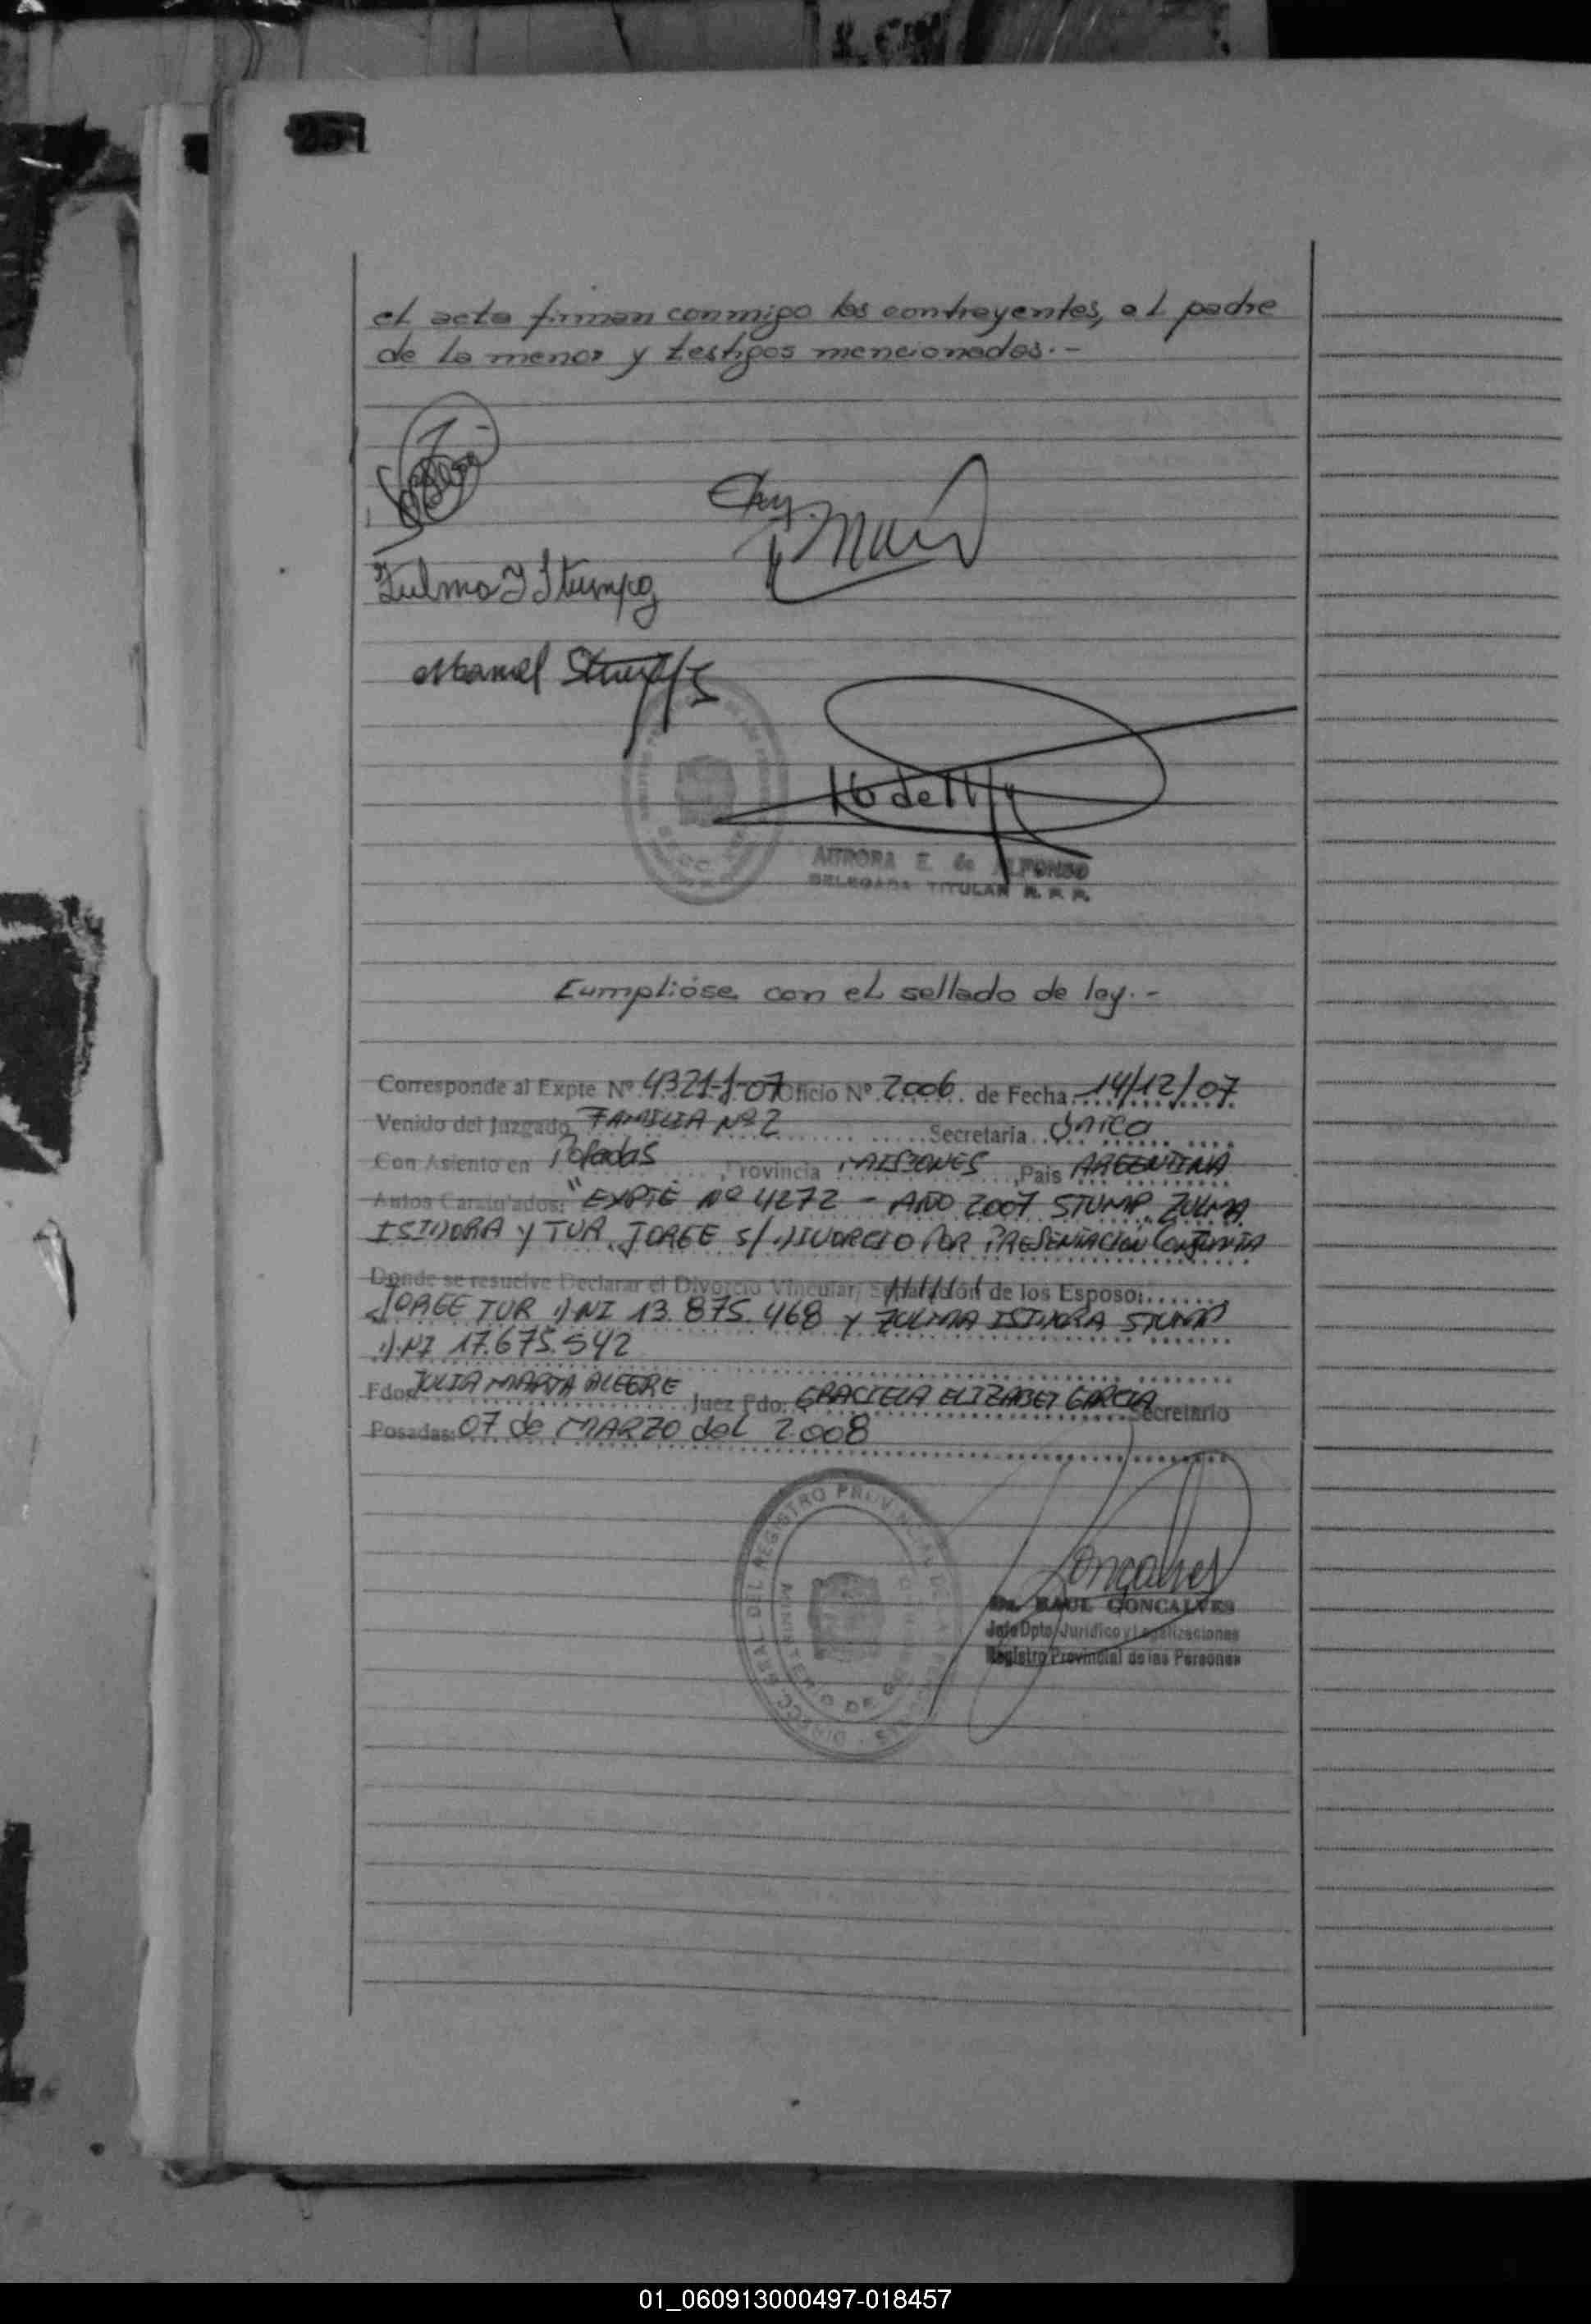 el acta firman conmigo los contrayentes, el padre
de la menor y testigos mencionados.-
Zulma I Stumpg
Manuel
AURORA E. de ALFONSO
DELEGADA TITULAR R. P. P.
Cumplióse con el sellado de ley.-
Corresponde al Expte Nº 4321-J-07 Oficio Nº 2006 de Fecha 14/12/07
Venido del Juzgado FAMILIA Nº 2 Secretaria Única
Con Asiento en Posadas Provincia MISIONES, Pais ARGENTINA
Autos Caratulados: "EXPTE Nº 4272 - AÑO 2007 STUMP ZULMA
ISIDORA Y TUR JORGE S/ DIVORCIO POR PRESENTACION CONJUNTA
Donde se resuelve Declarar el Divorcio Vincular/ Separación de los Esposo:
JORGE TUR DNI 13.875.468 Y ZULMA ISIDORA STUMP
DNI 17.675.542
Fdo: JULIA MARTA ALEGRE Juez Fdo: GRACIELA ELIZABET GARCIA Secretario
Posadas: 07 de MARZO del 2.008
DIRECC. GRAL DEL REGISTRO PROVINCIAL DE LAS PERSONAS
MINISTERIO DE GOBIERNO
Goncalves
Dr. RAUL GONCALVES
Jefe Dpto Juridico y Legalizaciones
Registro Provincial de las Personas
01_060913000497-018457